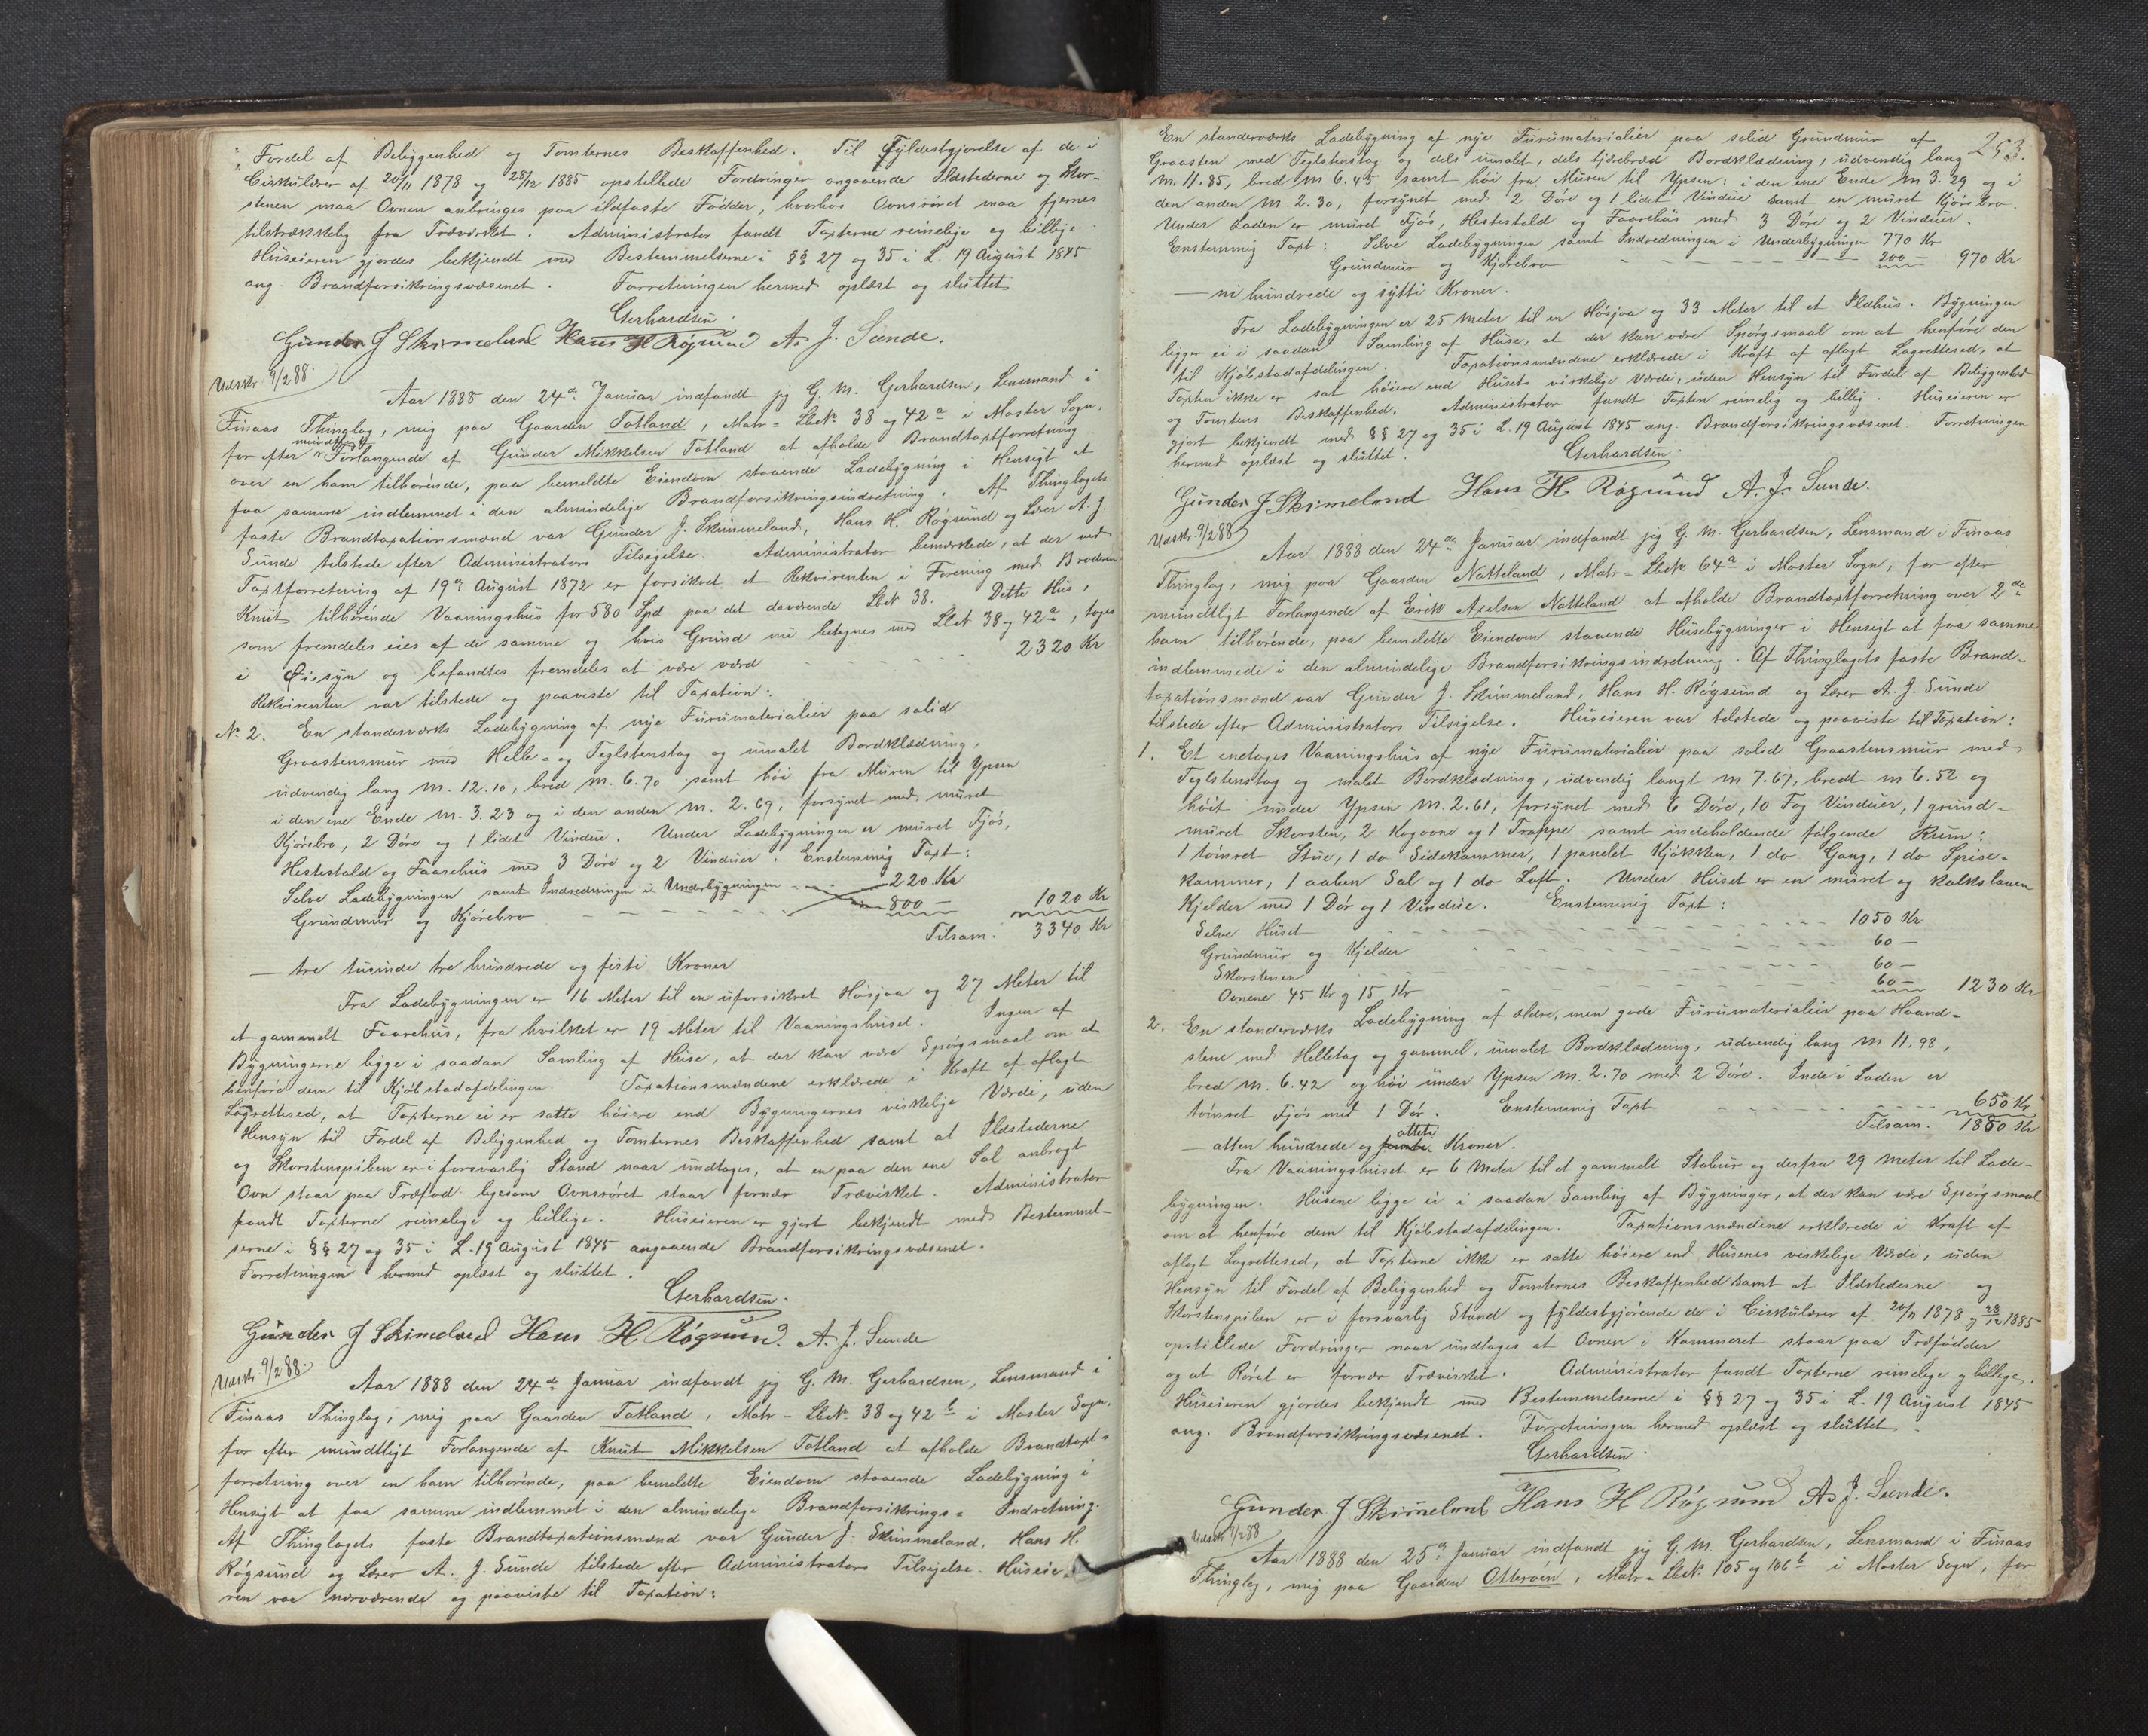 Fordel af Beliggenhed og Tomternes Beskaffenhed. Til Fyldestgjørelse af de i
Cirkulærer af 20/11 1878 og 28/12 1885 opstillede Fordringer angaaende Ildstederne og Skor-
stenen maa Ovnen anbringes paa ildfaste Fødder, hvorhos Ovnsrøret maa fjernes
tilstrækkelig fra Træværket. Administrator fandt Taxterne rimelige og billige.
Huseieren gjordes bekjendt med Bestemmelserne i §§ 27 og 35 i L. 19 August 1845
ang. Brandforsikringsvæsenet. Forretningen hermed oplæst og sluttet
Gerhardsen.
Gunder J Skimeland Hans H Røgsund A. J. Sunde.
Udskr. 9/2 88.
Aar 1888 den 24de Januar indfandt jeg G. M. Gerhardsen, Lensmand i
Finaas Thinglag, mig paa Gaarden Totland, Matr-Lbek 38 og 42a i Moster Sogn,
for efter mundtligt Forlangende af Gunder Mikkelsen Totland at afholde Brandtaxtforretning
over en ham tilhørende, paa bemeldte Eiendom staaende Ladebygning i Hensigt at
faa samme indlemmet i den almindelige Brandforsikringsindretning. Af Thinglagets
faste Brandtaxationsmænd var Gunder J. Skimmeland, Hans H. Røgsund og Lærer A. J.
Sunde tilstede efter Administrators Tilsigelse. Administrator bemærkede, at der ved
Taxtforretning af 19de August 1872 er forsikret et Rekvirenten i Forening med Broderen
Knut tilhørende Vaaningshus for 580 Spd paa det daværende Lbek 38. Dette Hus,
som fremdeles eies af de samme og hvis Grund nu betegnes med Lbek 38 og 42a, toges
i Øiesyn og befandtes fremdeles at være værd 2320 Kr
Rekvirenten var tilstede og paaviste til Taxation:
No 2. En standerværks Ladebygning af nye Furumaterialier paa solid
Graastensmur med Helle- og Teglstenstag og umalet Bordklædning,
udvendig lang m. 12.10, bred m. 6.70 samt høi fra Muren til Ypsen
i den ene Ende m. 3.23 og i den anden m. 2.69, forsynet med muret
Kjørebro, 2 Døre og 1 lidet Vindue. Under Ladebygningen er muret Fjøs,
Hestestald og Faarehus med 3 Døre og 2 Vinduer. Enstemmig Taxt:
Selve Ladebygningen samt Indredningen i Underbygningen 220 Kr
Grundmur og Kjørebro 800 – 1020 Kr
Tilsam. 3340 Kr
– tre tusinde tre hundrede og firti Kroner
Fra Ladebygningen er 16 Meter til en uforsikret Høsjaa og 27 Meter til
et gammelt Faarehus, fra hvilket er 19 Meter til Vaaningshuset. Ingen af
Bygningerne ligge i saadan Samling af Huse, at der kan være Spørgsmaal om at
henføre dem til Kjøbstadafdelingen. Taxationsmændene erklærede i Kraft af aflagt
Lagrettesed, at Taxterne ei er satte høiere end Bygningernes virkelige Værdi, uden
Hensyn til Fordel af Beliggenhed og Tomternes Beskaffenhed samt at Ildstederne
og Skorstenspiben er i forsvarlig Stand naar undtages, at en paa den ene Sal anbragt
Ovn staar paa Træfod ligesom Ovnsrøret staar fornær Træværket. Administrator
fandt Taxterne rimelige og billige. Huseieren er gjort bekjendt med Bestemmel-
serne i §§ 27 og 35 i L. 19 August 1845 angaaende Brandforsikringsvæsenet.
Forretningen hermed oplæst og sluttet.
Gerhardsen.
Gunder J Skimeland Hans H. Røgsund. A. J. Sunde
Udskr. 9/2 88.
Aar 1888 den 24de Januar indfandt jeg G. M. Gerhardsen, Lensmand i
Finaas Thinglag, mig paa Gaarden Totland, Matr-Lbek 38 og 42b i Moster Sogn,
for efter mundtligt Forlangende af Knut Mikkelsen Totland at afholde Brandtaxt-
forretning over en ham tilhørende, paa bemeldte Eiendom staaende Ladebygning i
Hensigt at faa samme indlemmet i den almindelige Brandforsikrings-Indretning.
Af Thinglagets faste Brandtaxationsmænd var Gunder J. Skimmeland, Hans H.
Røgsund og Lærer A. J. Sunde tilstede efter Administrators Tilsigelse. Huseie-
ren var nærværende og paaviste til Taxation:
253.
En standerværks Ladebygning af nye Furumaterialier paa solid Grundmur af
Graasten med Teglstenstag og dels umalet, dels tjærebrædt Bordklædning, udvendig lang
m. 11.85, bred m 6.45 samt høi fra Muren til Ypsen: i den ene Ende m 3.29 og i
den anden m. 2.30, forsynet med 2 Døre og 1 lidet Vindue samt en muret Kjørebro.
Under Laden er muret Fjøs, Hestestald og Faarehus med 3 Døre og 2 Vinduer.
Enstemmig Taxt: Selve Ladebygningen samt Indredningen i Underbygningen 770 Kr
Grundmur og Kjørebro 200 – 970 Kr
– ni hundrede og sytti Kroner.
Fra Ladebygningen er 25 Meter til en Høsjaa og 33 Meter til et Ildhus. Bygningen
ligger ei i saadan Samling af Huse, at der kan være Spørgsmaal om at henføre den
til Kjøbstadafdelingen. Taxationsmændene erklærede i Kraft af aflagt Lagrettesed, at
Taxten ikke er sat høiere end Husets virkelige Værdi, uden Hensyn til Fordel af Beliggenhed
og Tomtens Beskaffenhed. Administrator fandt Taxten rimelig og billig. Huseieren er
gjort bekjendt med §§ 27 og 35 i L. 19 August 1845 ang. Brandforsikringsvæsenet. Forretningen
hermed oplæst og sluttet.
Gerhardsen.
Gunder J Skimeland Hans H Røgsund A. J. Sunde.
Udskr. 9/2 88
Aar 1888 den 24de Januar indfandt jeg G. M. Gerhardsen, Lensmand i Finaas
Thinglag, mig paa Gaarden Natteland, Matr-Lbek 64a i Moster Sogn, for efter
mundtligt Forlangende af Erik Axelsen Natteland at afholde Brandtaxtforretning over 2de
ham tilhørende, paa bemeldte Eiendom staaende Husebygninger i Hensigt at faa samme
indlemmede i den almindelige Brandforsikringsindretning. Af Thinglagets faste Brand-
taxationsmænd var Gunder J. Skimmeland, Hans H. Røgsund og Lærer A. J. Sunde
tilstede efter Administrators Tilsigelse. Huseieren var tilstede og paaviste til Taxation:
1. Et enetages Vaaningshus af nye Furumaterialier paa solid Graastensmur med
Teglstenstag og malet Bordklædning, udvendig langt m 7.67, bredt m 6.52 og
høit under Ypsen m. 2.61, forsynet med 6 Døre, 10 Fag Vinduer, 1 grund-
muret Skorsten, 2 Kogovne og 1 Trappe samt indeholdende følgende Rum:
1 tømret Stue, 1 do Sidekammer, 1 panelet Kjøkken, 1 do Gang, 1 do Spise-
kammer, 1 aaben Sal og 1 do Loft. Under Huset er en muret og kalkslaaen
Kjelder med 1 Dør og 1 Vindue. Enstemmig Taxt:
Selve Huset 1050 Kr
Grundmur og Kjelder 60 –
Skorstenen 60 –
Ovnene 45 Kr og 15 Kr 60 – 1230 Kr
2. En standerværks Ladebygning af ældre, men gode Furumaterialier paa Haand-
stene med Helletag og gammel, umalet Bordklædning, udvendig lang m 11.98,
bred m. 6.42 og høi under Ypsen m. 2.70 med 2 Døre. Inde i Laden er
tømret Fjøs med 1 Dør. Enstemmig Taxt 650 Kr
Tilsam. 1880 Kr
– atten hundrede og otteti Kroner.
Fra Vaaningshuset er 6 Meter til et gammelt Stabur og derfra 29 Meter til Lade-
bygningen. Husene ligge ei i saadan Samling af Bygninger, at der kan være Spørgsmaal
om at henføre dem til Kjøbstadafdelingen. Taxationsmændene erklærede i Kraft af
aflagt Lagrettesed, at Taxterne ikke er satte høiere end Husenes virkelige Værdi, uden
Hensyn til Fordel af Beliggenhed og Tomternes Beskaffenhed samt at Ildstederne og
Skorstenspiben er i forsvarlig Stand og fyldestgjørende de i Cirkulærer af 20/11 1878 og 28/12 1885
opstillede Fordringer naar undtages at Ovnen i Kammeret staar paa Træfødder
og at Røret er fornær Træværket. Administrator fandt Taxterne rimelige og billige.
Huseieren gjordes bekjendt med Bestemmelserne i §§ 27 og 35 i L. 19 August 1845
ang. Brandforsikringsvæsenet. Forretningen hermed oplæst og sluttet
Gerhardsen.
Gunder J Skimeland Hans H Røgsund A. J. Sunde.
Udskr 9/2 88
Aar 1888 den 25de Januar indfandt jeg G. M. Gerhardsen, Lensmand i Finaas
Thinglag, mig paa Gaarden Otterøen, Matr-Lbek 105 og 106b i Moster Sogn, for